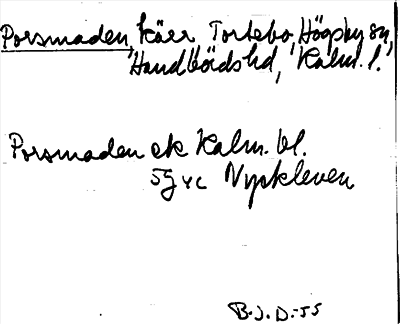 Porsmaden, kärr Tortebo, Högsby sn,
Handbörds hd, Kalm. l.
Porsmaden ek Kalm. bl.
5g yc Nyskleven
B.J.D.-55